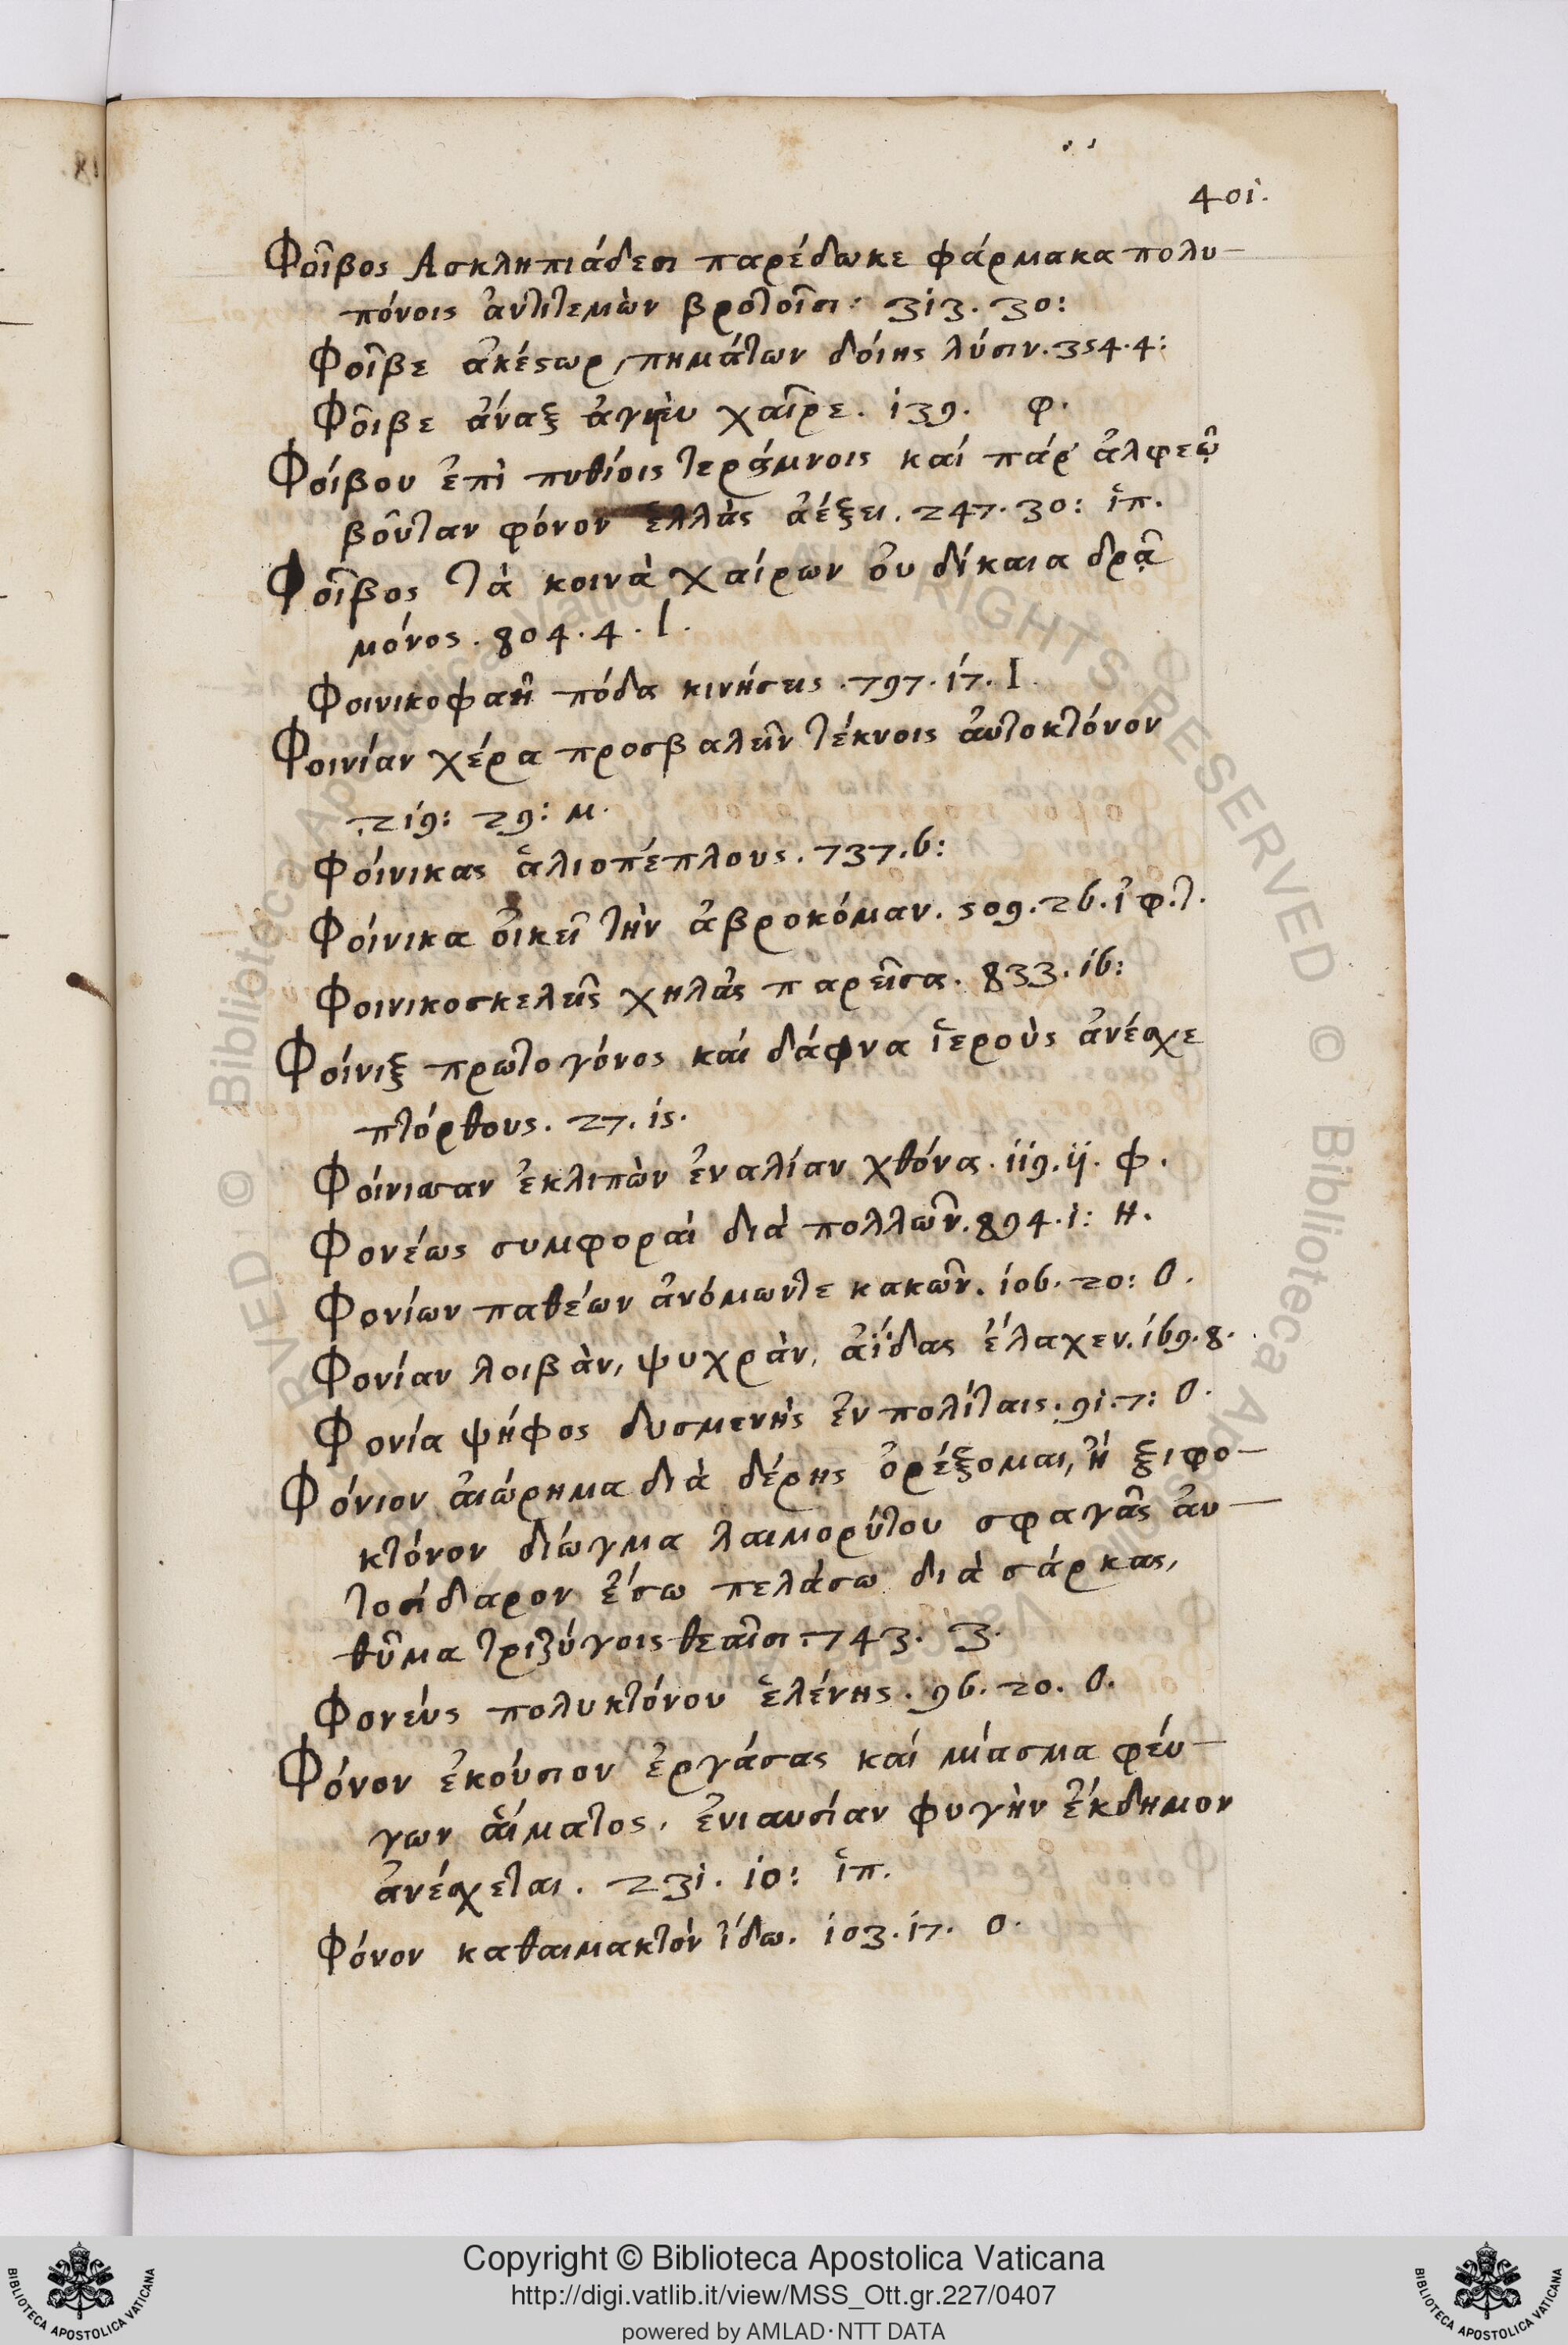 401.
Φοῖβος Ασκληπιάδεσι παρέδωκε φάρμακα πολυ-
πόνοις ἀντιτεμὼν βροτοῖσι· 313. 30:
Φοῖβε ἀκέστωρ, πημάτων δόιης λύσιν. 354. 4:
Φοῖβε ἄναξ ἀγυιεῦ χαῖρε. 139. φ.
Φοίβου ἐπὶ πυθίοις τεράμνοις καὶ πάρ' ἀλφεῷ
βούταν φόνον ἑλλὰς ἀέξει. 247. 30: ἱπ.
Φοῖβος τὰ κοινὰ χαίρων ὀυ δίκαια δρᾷ
μόνος. 804. 4. Ι.
Φοινικοφαῆ πόδα κινήσεις. 797. 17. Ι.
Φοινίαν χέρα προσβαλεῖν τέκνοις ἀυτοκτόνον
219: 29: μ.
Φοίνικας ἁλιοπέπλους. 737. 6:
Φοίνικα ὀικεῖ τὴν ἁβροκόμαν. 509. 26. ἰφ. τ.
Φοινικοσκελεῖς χηλὰς παρεῖσα. 833. 16:
Φοίνιξ πρωτογόνος καὶ δάφνα ἱεροὺς ἀνέσχε
πτόρθους. 27. 15.
Φοίνισσαν ἐκλιπὼν ἐναλίαν χθόνα. 119. 11. φ.
Φονέως συμφοραὶ διὰ πολλῶν. 894. 1: Η.
Φονίων παθέων ἀνόμωντε κακῶν. 106. 20: Ο.
Φονίαν λοιβὰν, ψυχρὰν, ἀΐδας ἔλαχεν. 169. 8.
Φονία ψήφος δυσμενὴς ἐν πολίταις. 91. 7: Ο.
Φόνιον ἀιώρημα διὰ δέρης ὀρέξομαι, ἢ ξιφο-
κτόνον δίωγμα λαιμορύτου σφαγᾶς ἀυ-
τοσίδαρον ἔισω πελάσω διὰ σάρκας,
θῦμα τριζύγοις θεαῖσι. 743. 3.
Φονεὺς πολυκτόνου ἑλένης. 96. 20. Ο.
Φόνον ἑκούσιον ἐργάσας καὶ μίασμα φέυ-
γων ἅιματος, ἐνιαυσίαν φυγὴν ἔκδημον
ἀνέσχεται. 231. 10: ἱπ.
Φόνον καθαιμακτὸν ἴδω. 103. 17. Ο.
Copyright © Biblioteca Apostolica Vaticana
http://digi.vatlib.it/view/MSS_Ott.gr.227/0407
powered by AMLAD·NTT DATA